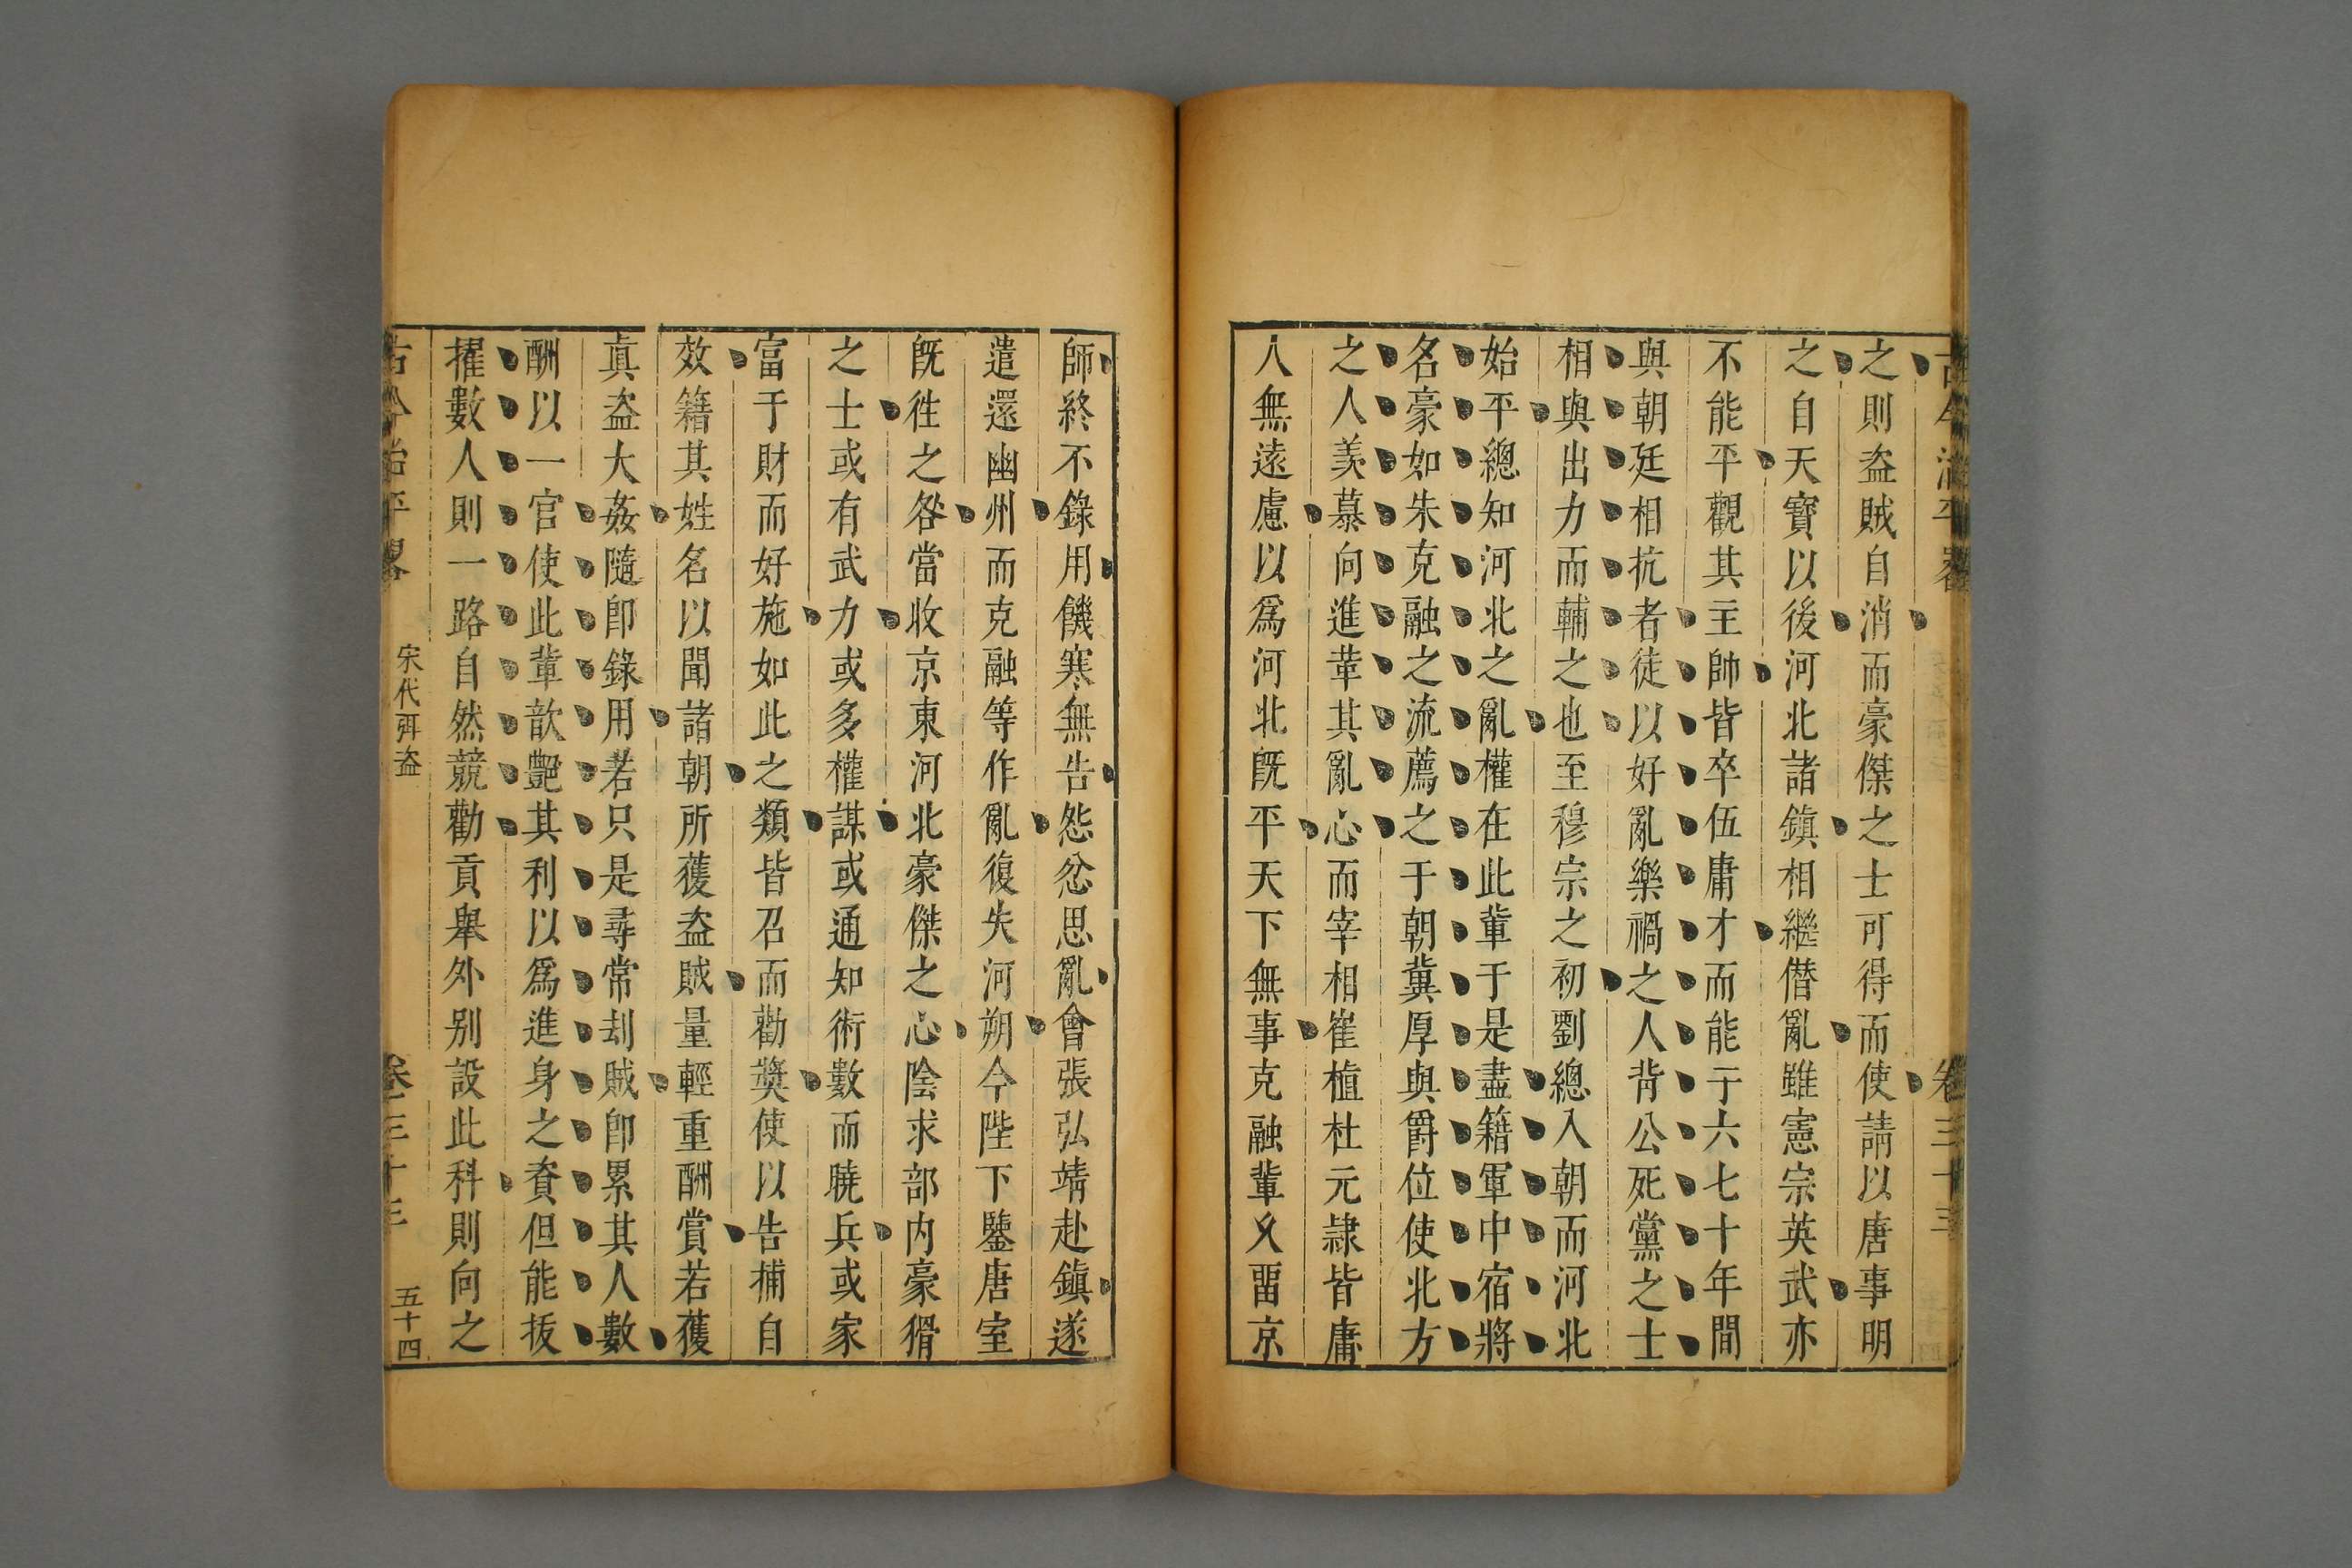 之則盗賊自消而豪傑之士可得而使請以唐事明
之自天寶以後河北諸鎮相繼僣亂雖憲宗英武亦
不能平觀其主帥皆卒伍庸才而能于六七十年間
與朝廷相抗者徒以好亂樂禍之人背公死黨之士
相與出力而輔之也至穆宗之初劉總入朝而河北
始平總知河北之亂權在此軰于是盡籍軍中宿將
名豪如朱克融之流薦之于朝冀厚與爵位使北方
之人羡慕向進革其亂心而宰相崔植杜元隷皆庸
人無遠慮以爲河北既平天下無事克融輩乆畱京
師終不錄用饑寒無告怨忿思亂會張弘靖赴鎮遂
遣還幽州而克融等作亂復失河朔今陛下鑒唐室
既徃之咎當收京東河北豪傑之心陰求部内豪猾
之士或有武力或多權謀或通知術數而曉兵或家
富于財而好施如此之類皆召而勸奬使以告捕自
效籍其姓名以聞諸朝所獲盗賊量輕重酬賞若獲
真盗大姦隨卽錄用若只是尋常刦賊卽累其人數
酬以一官使此軰歆艷其利以爲進身之資但能㧞
擢數人則一路自然競勸貢舉外别設此科則向之
古今治平畧
宋代弭盗
卷三十三
五十四